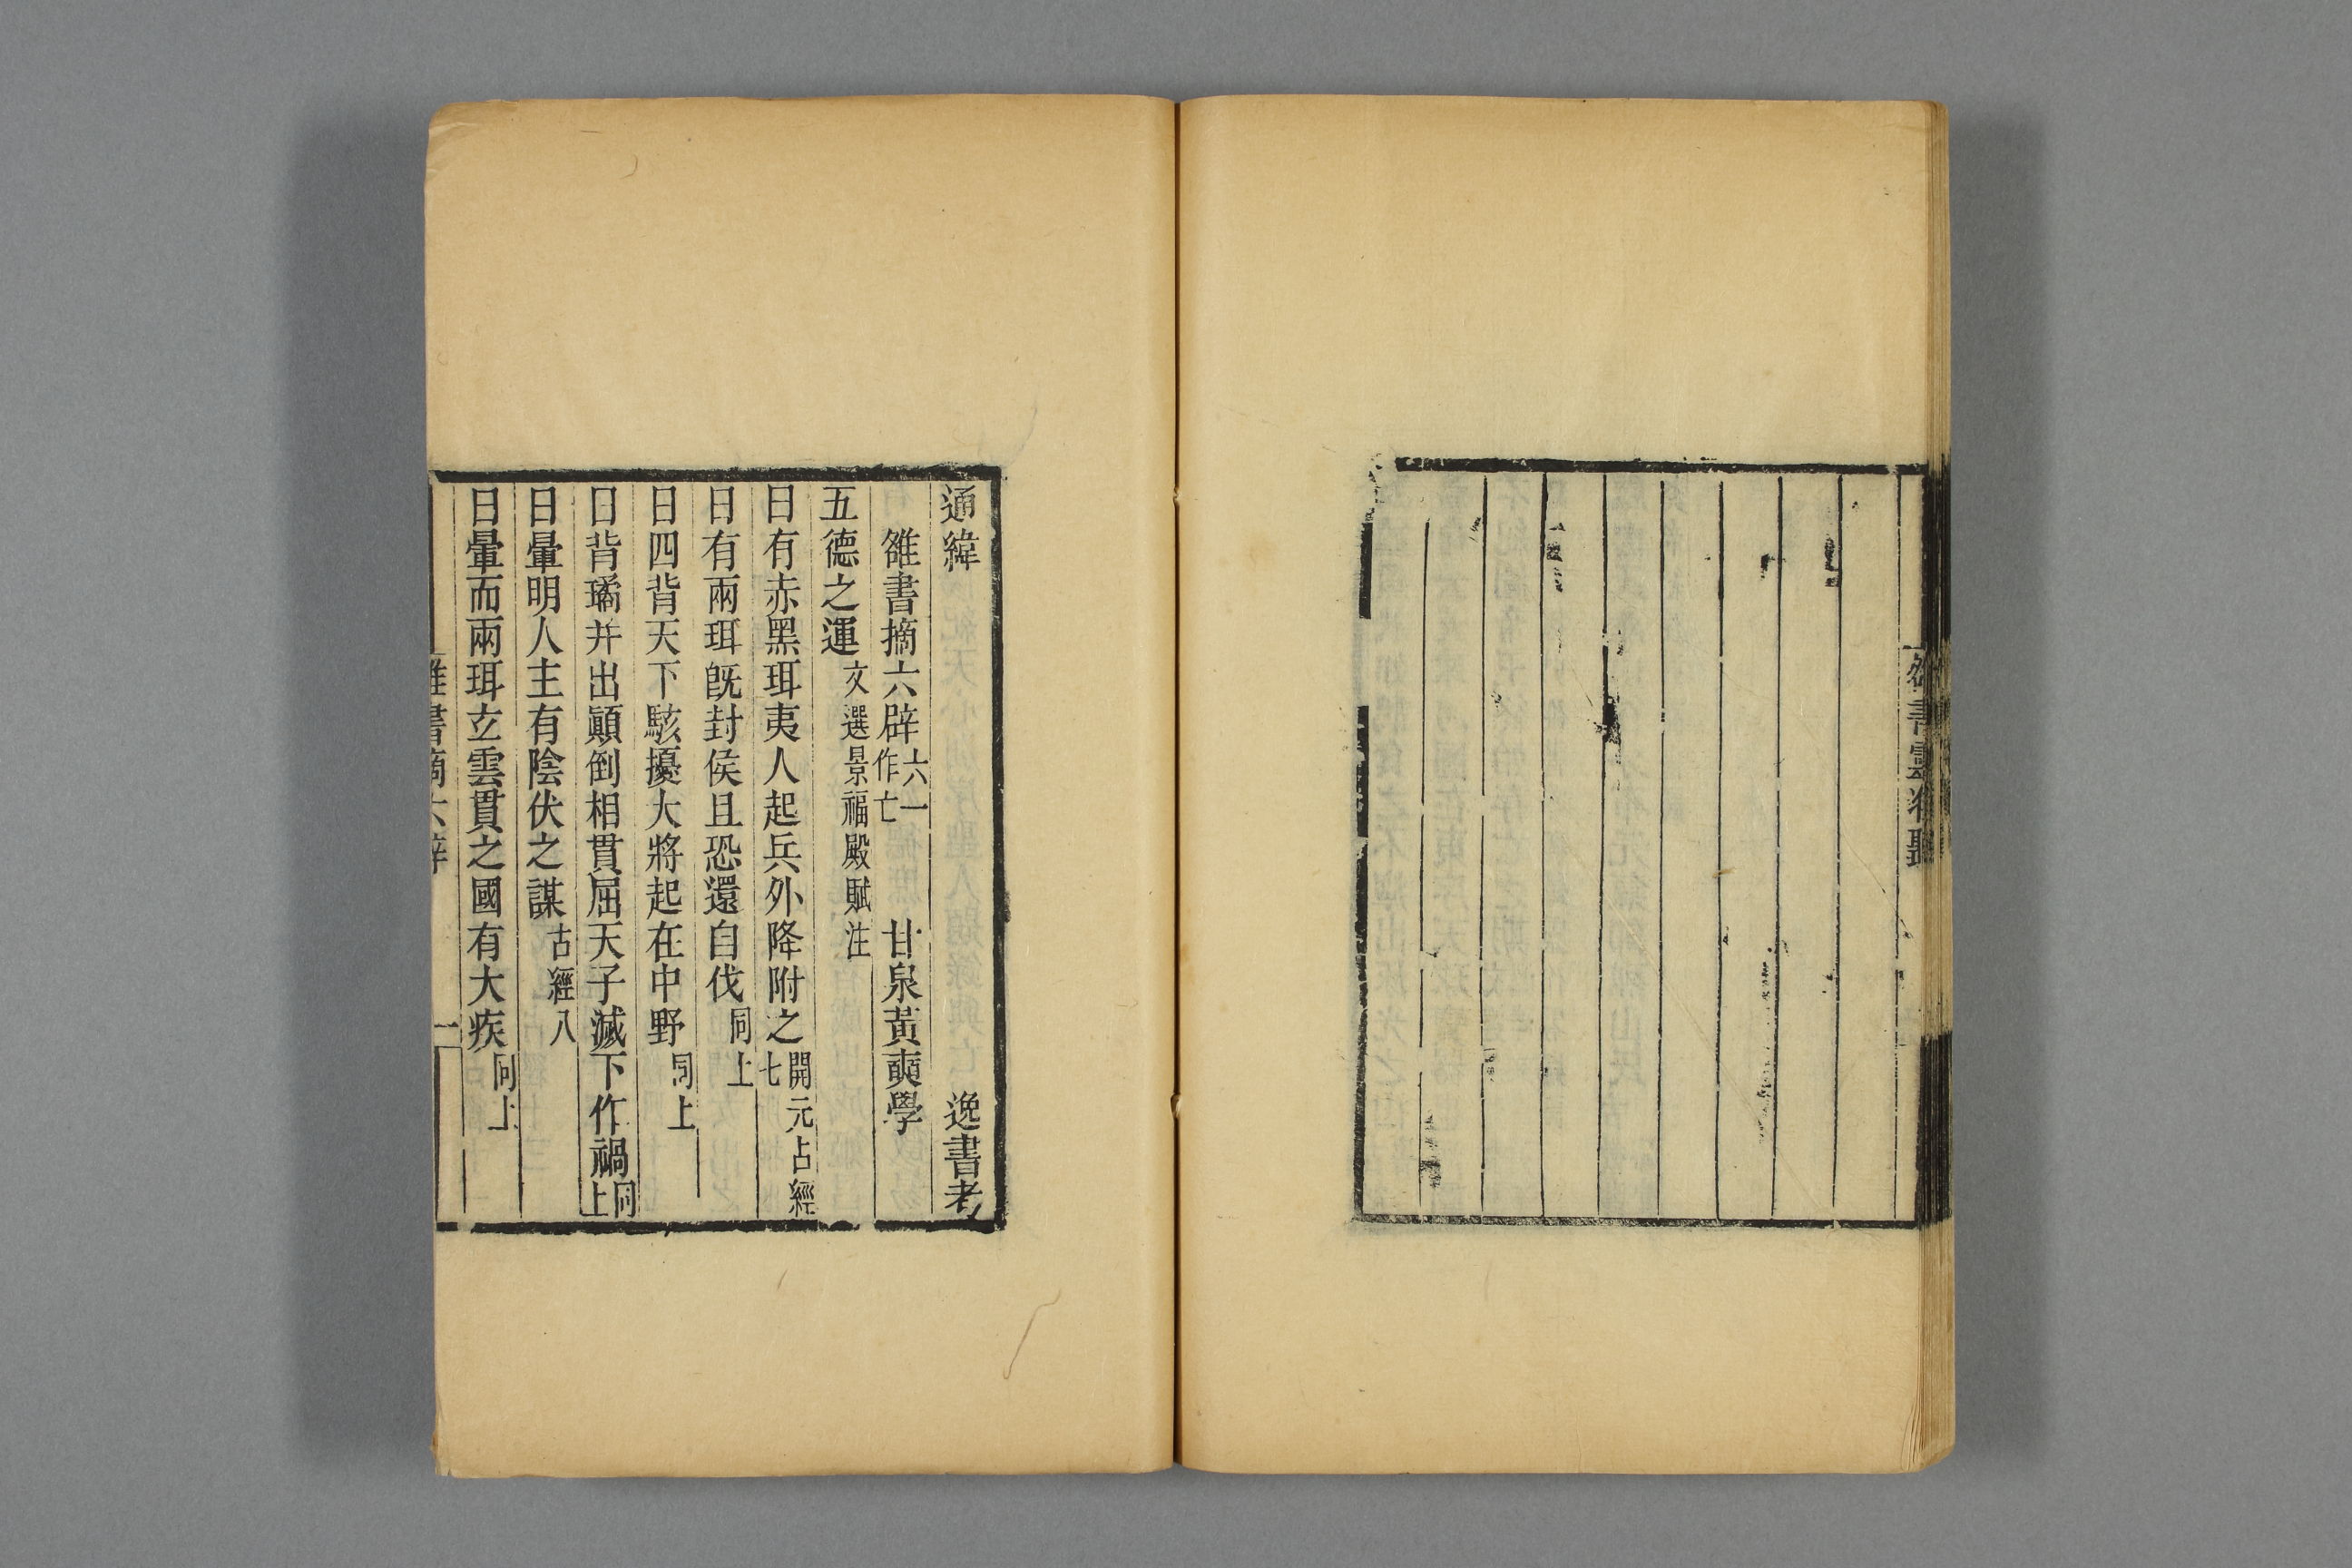 通緯 逸書考
雒書摘六辟六一作亡 甘泉黃奭學
五德之運文選景福殿賦注
日有赤黑珥夷人起兵外降附之開元占經七
日有兩珥旣封侯且恐還自伐同上
日四背天下駭擾大將起在中野同上
日背璚并出顚倒相貫屈天子滅下作禍同上
日暈明人主有陰伏之謀古經八
日暈而兩珥立雲貫之國有大疾同上
雒書摘六辟 一